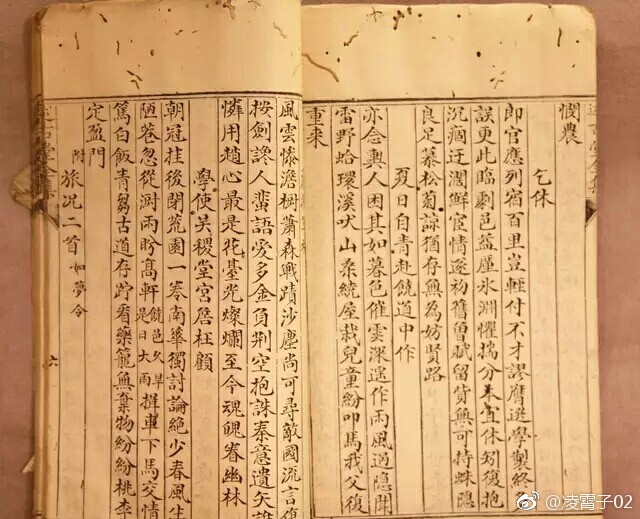 憫農
乞休
郎官應列宿百里豈輕付不才謬膺選學製終
誤更此臨劇邑益厪氷淵懼揣分本宜休矧復抱
沉痼迂闊鮮宦情遂初舊曾賦留貲無可持蛛隱
良足慕松菊諒猶存無為妨賢路
夏日自青赴饒道中作
亦念輿人困其如暮色催雲深遙作雨風過隱聞
雷野蛤環溪吠山桑繞屋栽兒童紛叩馬我父復
重來
風雲慘澹樹蕭森戰蹟沙塵尚可尋敵國流言復
按劍讒人蜚語愛多金負荆空抱誅秦意遺矢誰
憐用趙心最是花臺光燦爛至今魂魄眷幽林
學使吴稷堂宮詹枉顧
朝冠挂後閉荒園一卷南華獨討論絶少春風生
陋巷忽從澍雨盼高軒饒邑久旱是日大雨揮車下馬交情
篤白飯青芻古道存貯看藥籠無棄物紛紛桃李
定盈門
附旅况二首如夢令
六
@凌霄子02